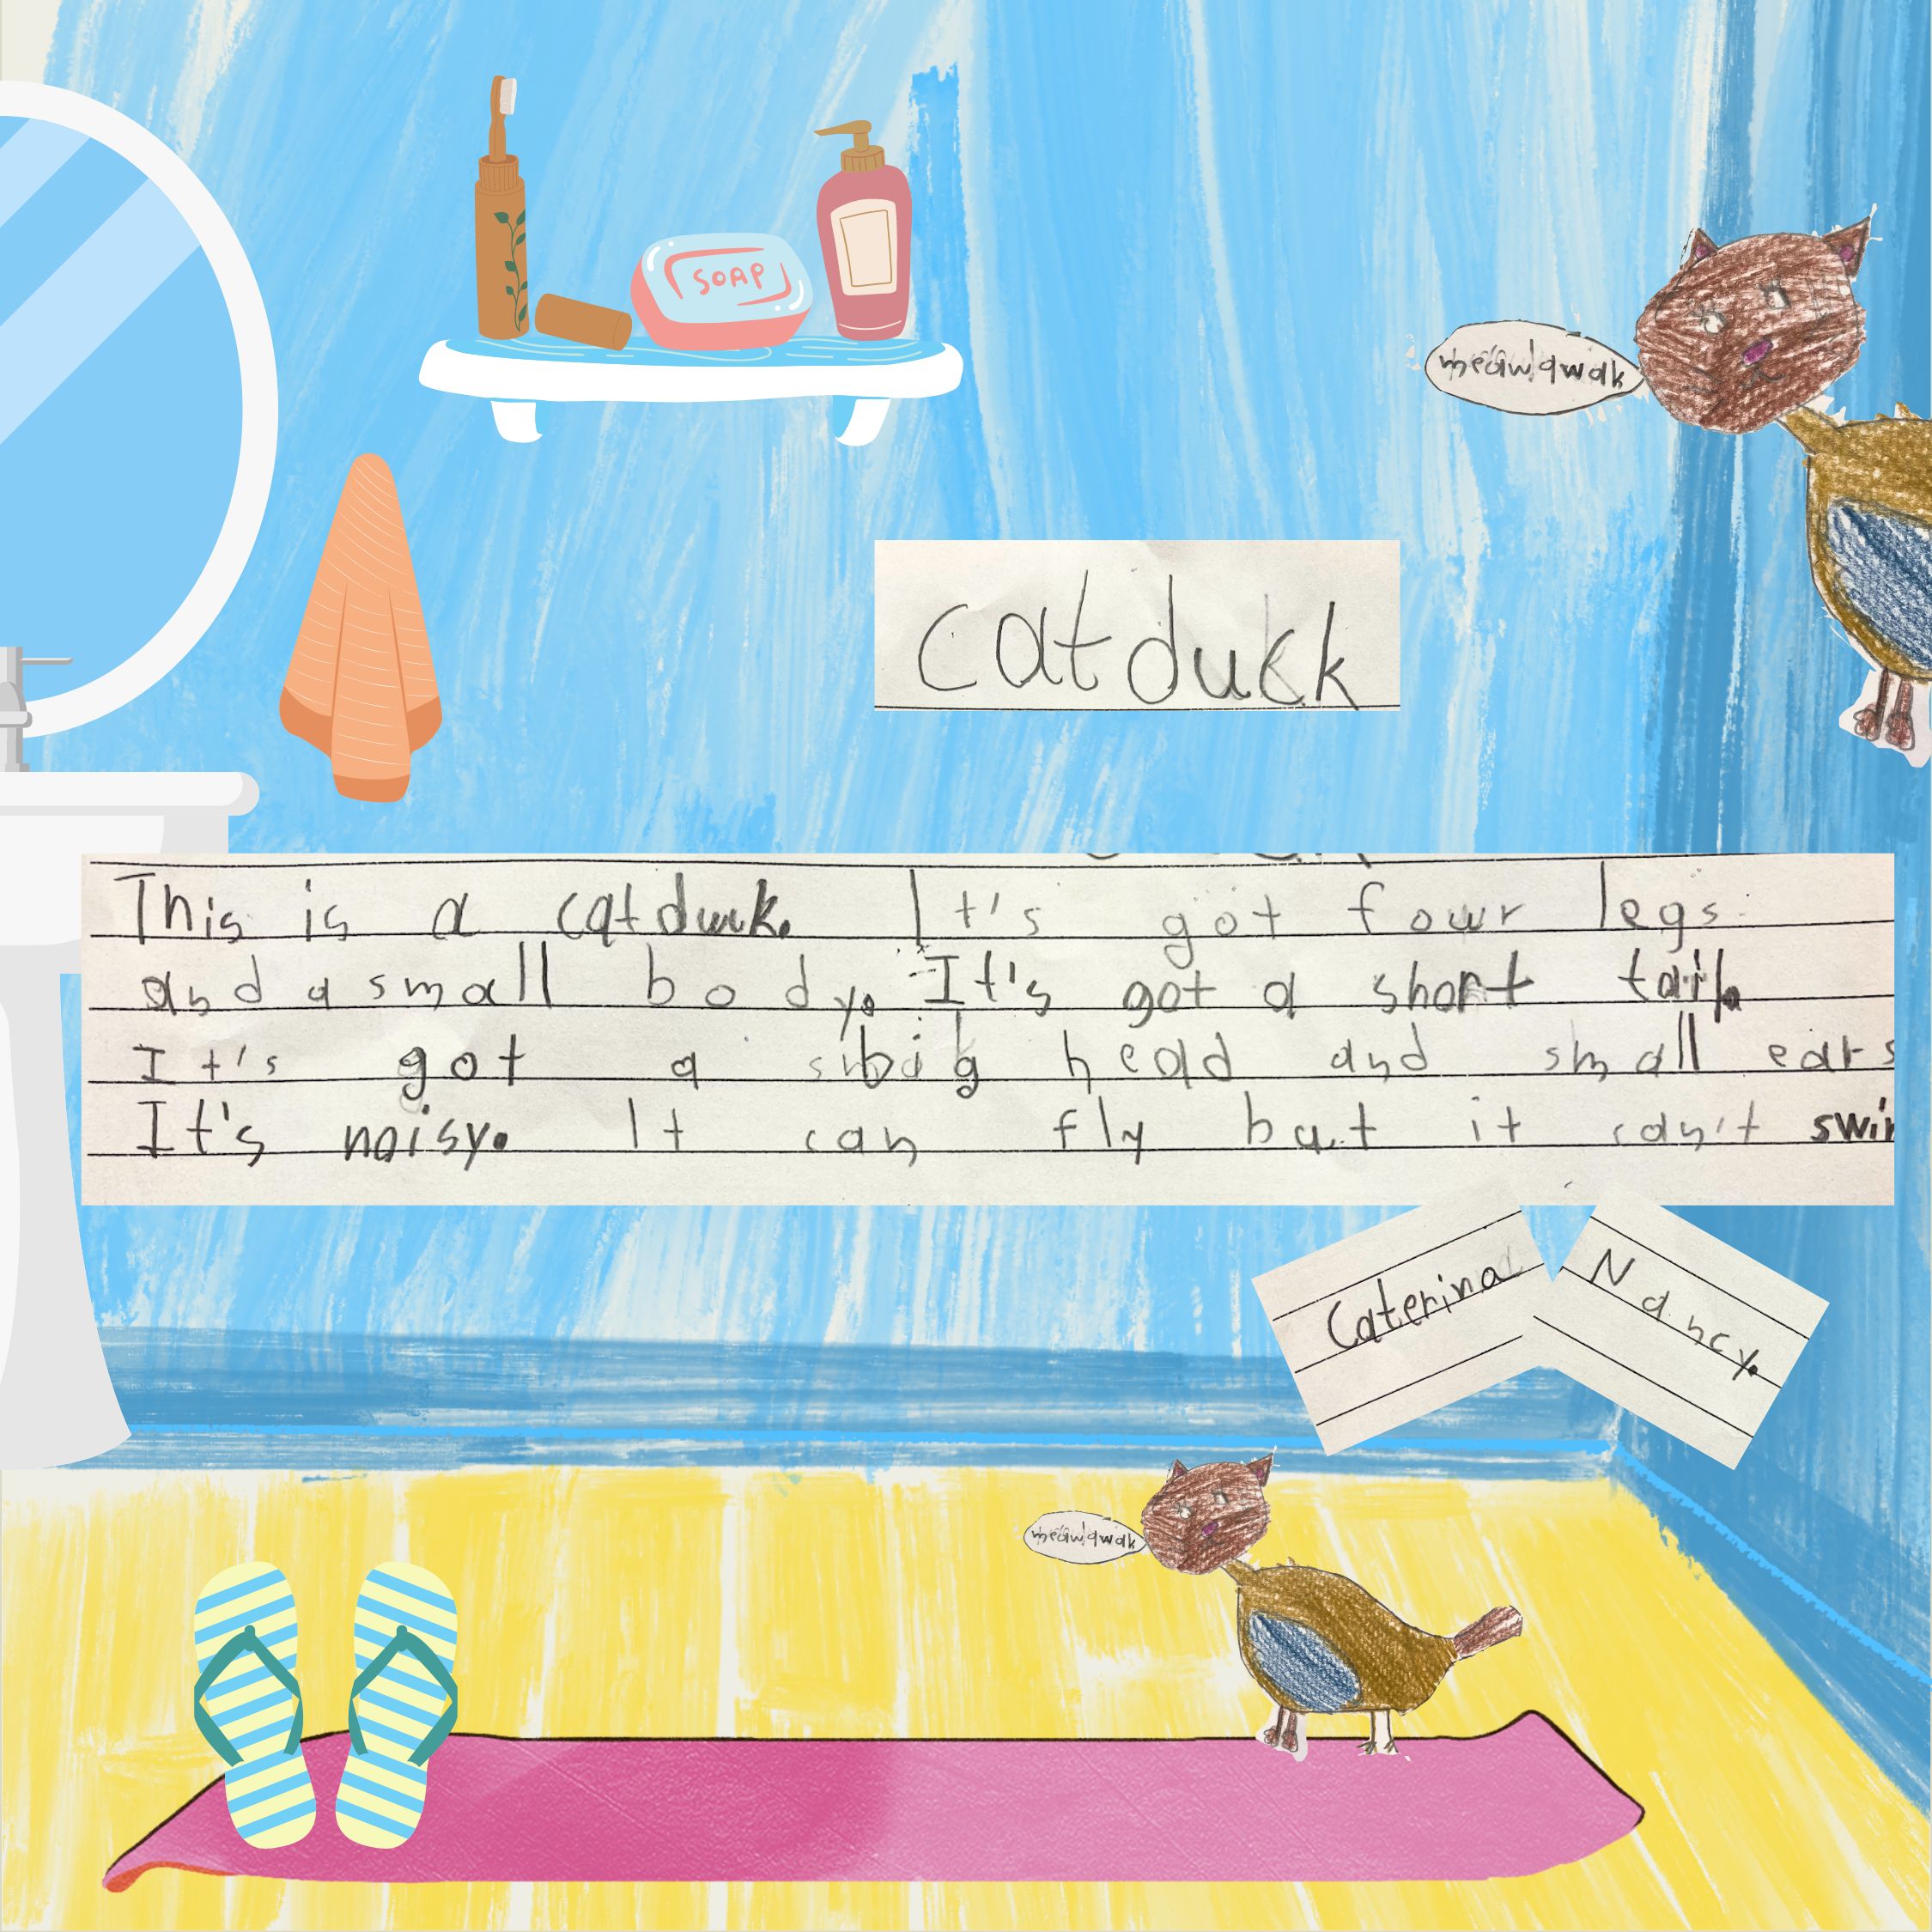 SOAP
meawqwak
catduck
This is a catduck. It's got four legs
and a small body. It's got a short tail.
It's got a big head and small ears
It's noisy. It can fly but it can't swi
Caterina
Nancy.
meawqwak